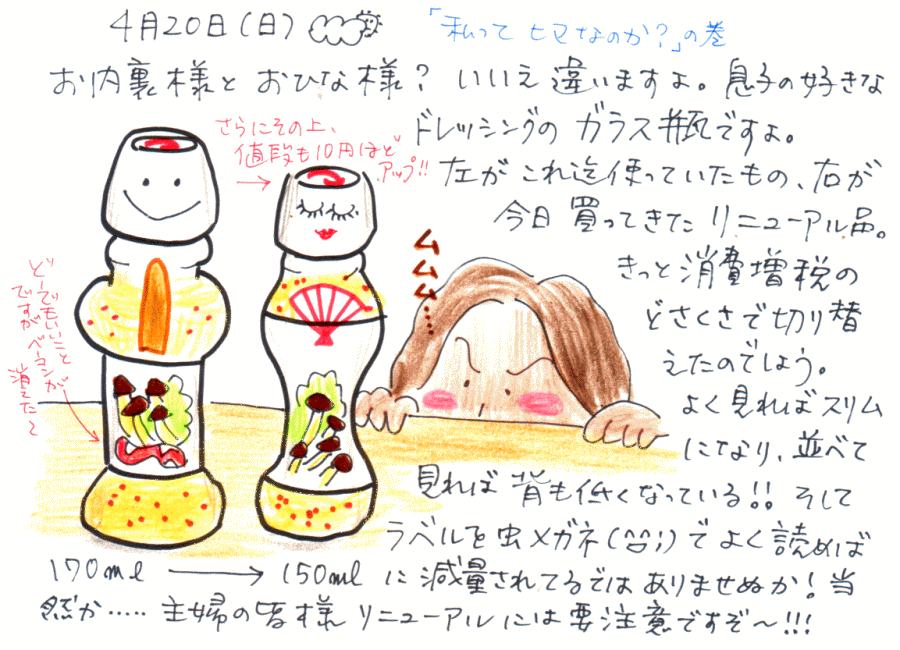 4月20日(日)
「私って ヒマなのか?」の巻
お内裏様と おひな様? いいえ 違いますよ。息子の好きな
ドレッシングの ガラス瓶ですよ。
左が これ迄使っていたもの、右が
今日 買ってきた リニューアル品。
きっと消費増税の
どさくさで切り替
えたのでしょう。
よく見ればスリム
になり、並べて
見れば 背も低くなっている!! そして
ラベルを虫メガネ(^^;)でよく読めば
170ml → 150ml に減量されてるではありませぬか!当
然か…‥ 主婦の皆様 リニューアルには要注意ですぞ〜!!!
さらにその上、
値段も10円ほど
アップ!!
→
ムムム……
どーでもいいこと
ですが ベーコンが
消えたよ